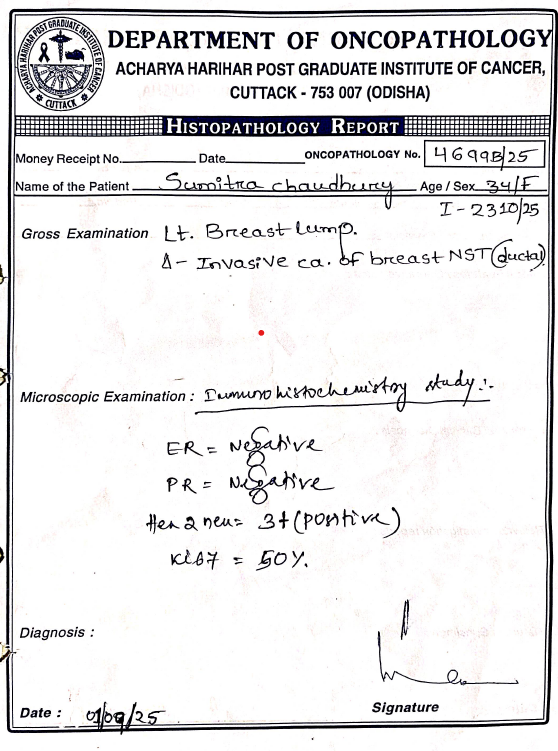 ACHARYA HARIHAR POST GRADUATE INSTITUTE OF CANCER
CUTTACK
DEPARTMENT OF ONCOPATHOLOGY
ACHARYA HARIHAR POST GRADUATE INSTITUTE OF CANCER,
CUTTACK - 753 007 (ODISHA)
HISTOPATHOLOGY REPORT
Money Receipt No. Date ONCOPATHOLOGY No. 4699B/25
Name of the Patient Sumitra chaudhury Age / Sex 34/F
I - 2310/25
Gross Examination Lt. Breast lump.
Δ - Invasive ca. of breast NST (ductal)
Microscopic Examination : Immunohistochemistry study :-
ER = Negative
PR = Negative
Her 2 neu = 3+ (positive)
Ki67 = 50%.
Diagnosis :
Signature
Date : 01/09/25